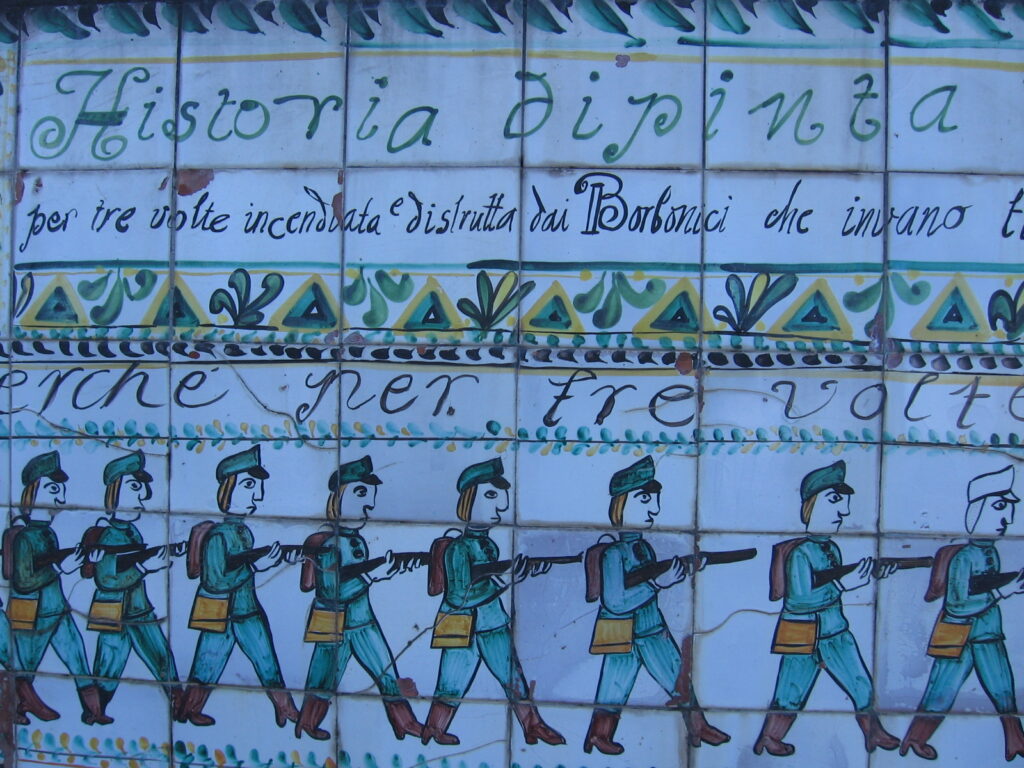 Historia dipinta
per tre volte incendiata e distrutta dai Borbonici che invano
erché per tre volte